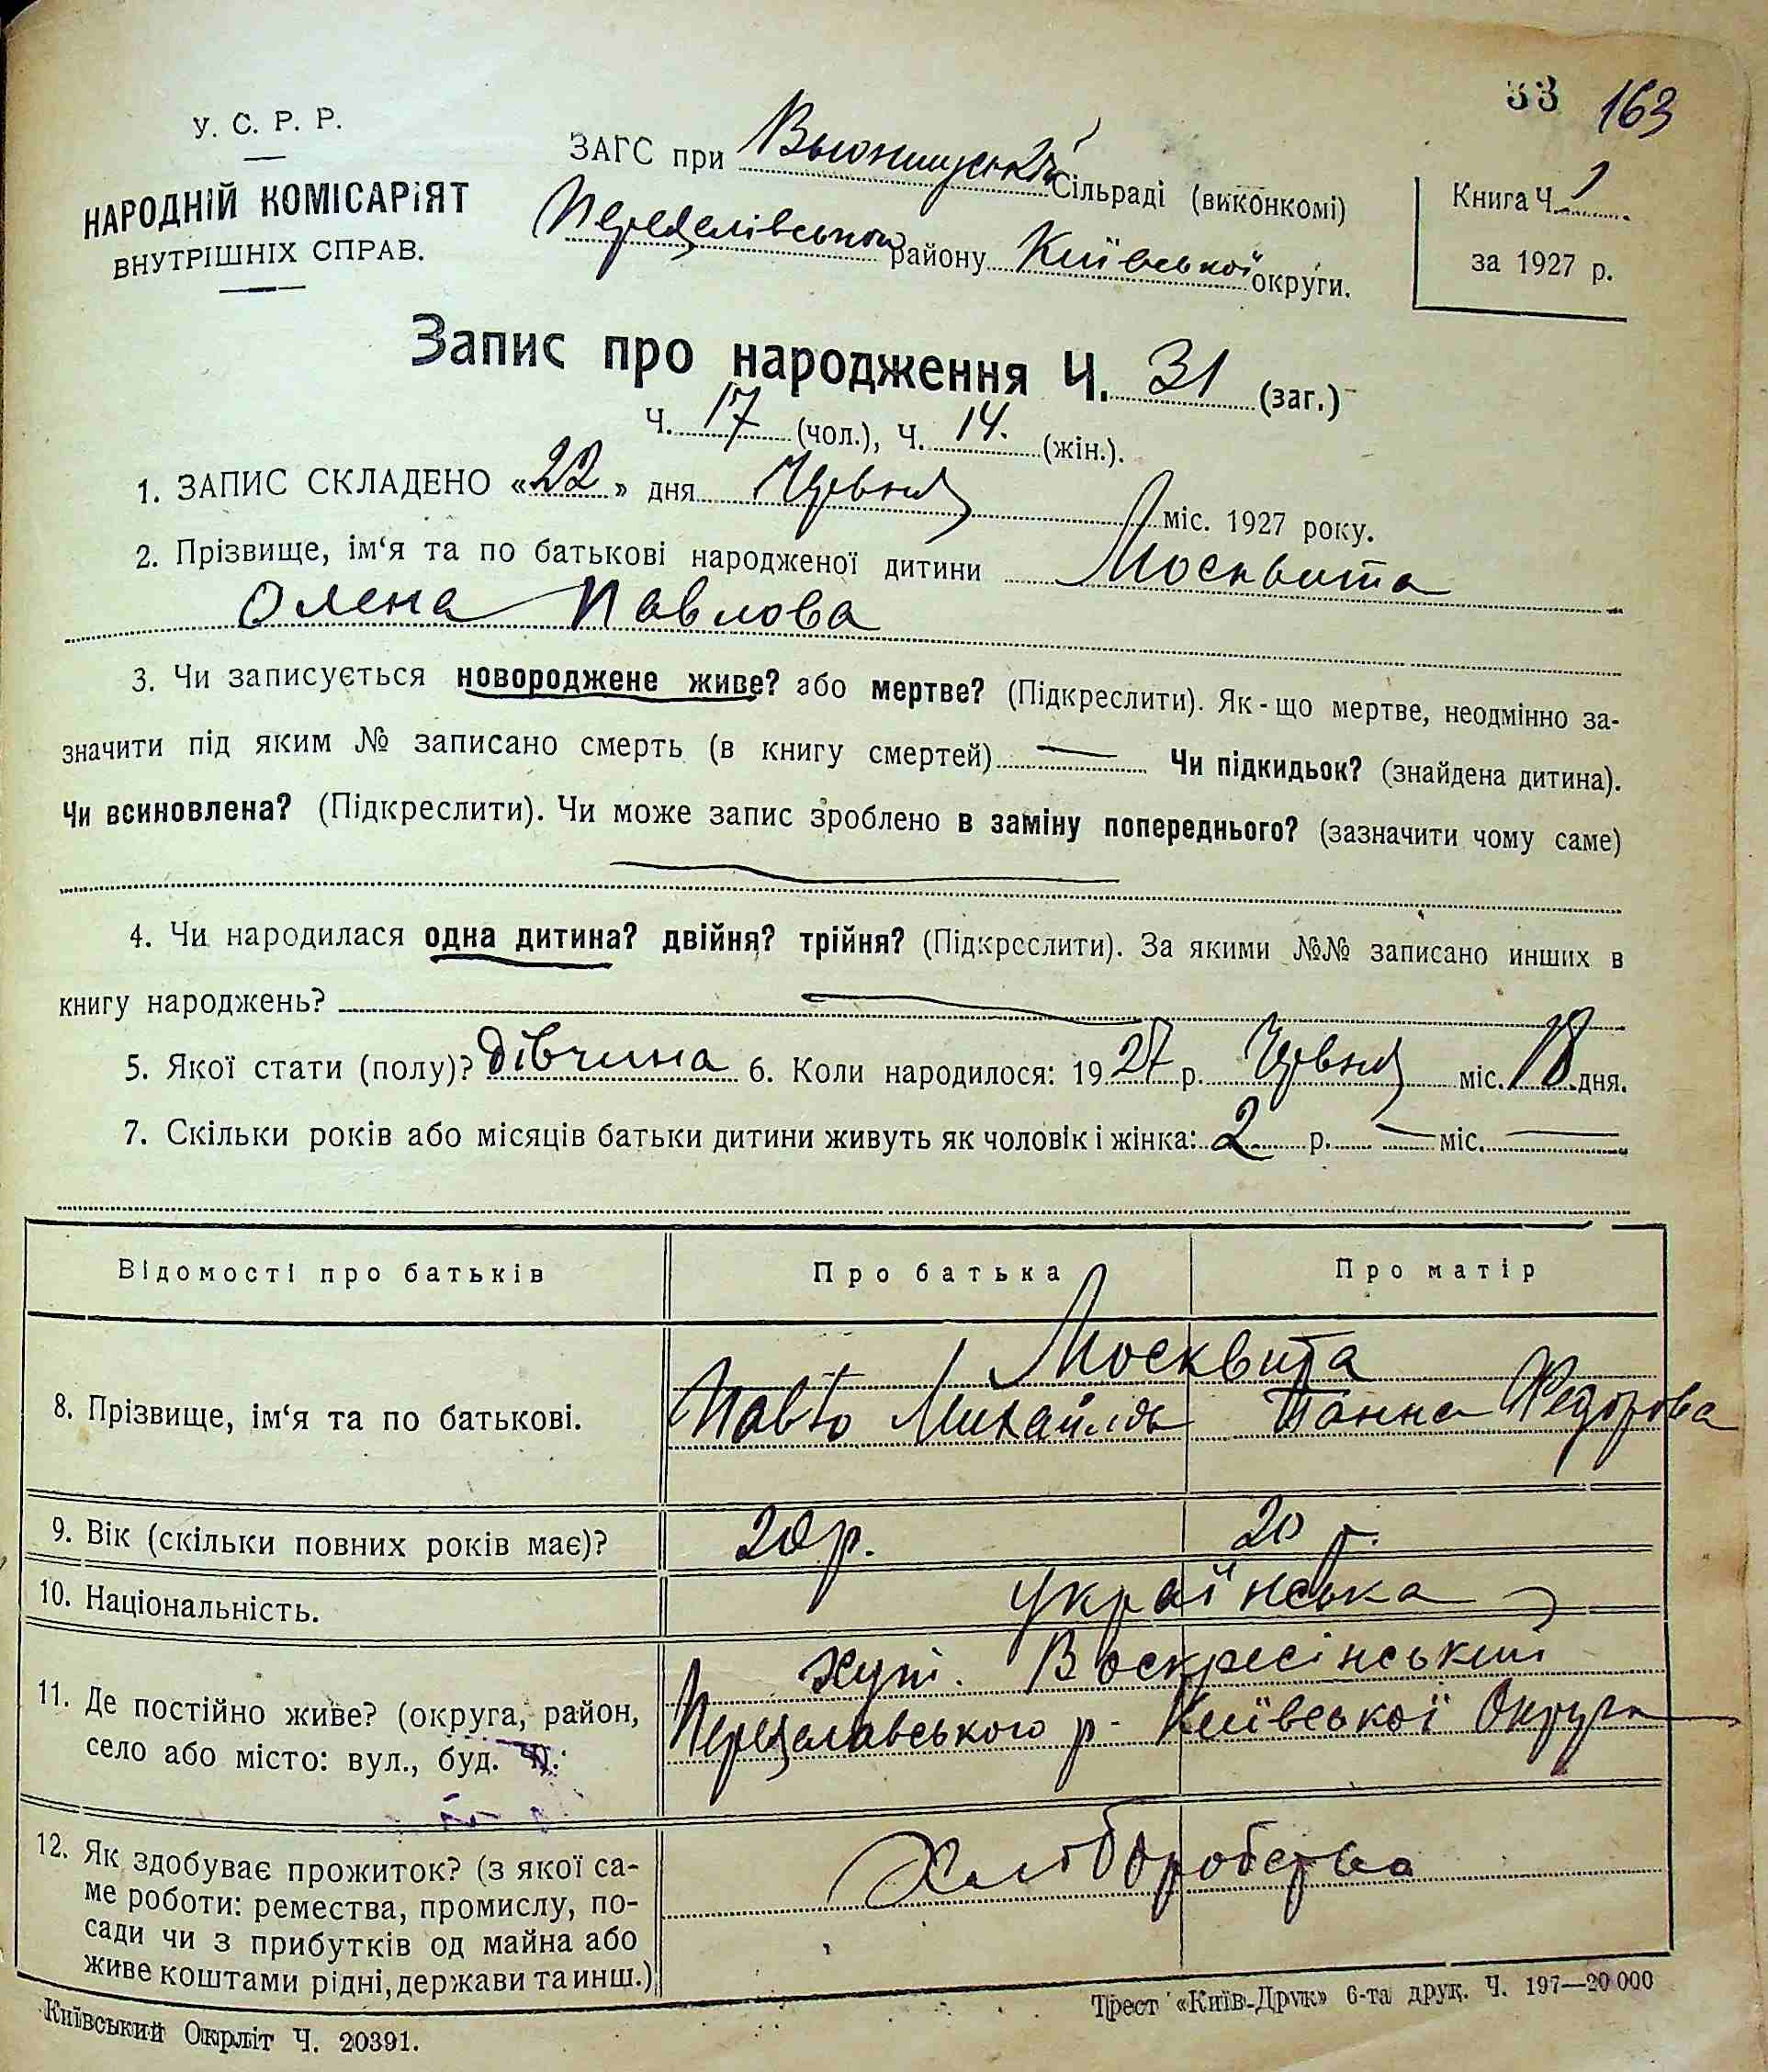 33 163
У. С. Р. Р.
НАРОДНІЙ КОМІСАРІЯТ
ВНУТРІШНІХ СПРАВ.
ЗАГС при Вьюнищській Сільраді (виконкомі)
району Київської округи.
Книга Ч. 1
за 1927 р.
Запис про народження Ч. 31 (заг.)
Ч. 17 (чол.), Ч. 14. (жін.).
1. ЗАПИС СКЛАДЕНО «22» дня Червня міс. 1927 року.
2. Прізвище, ім‘я та по батькові народженої дитини Москвита
Олена Павлова
3. Чи записується новороджене живе? або мертве? (Підкреслити). Як-що мертве, неодмінно за-
значити під яким № записано смерть (в книгу смертей) Чи підкидьок? (знайдена дитина).
Чи всиновлена? (Підкреслити). Чи може запис зроблено в заміну попереднього? (зазначити чому саме)
4. Чи народилася одна дитина? двійня? трійня? (Підкреслити). За якими №№ записано инших в
книгу народжень?
5. Якої стати (полу)? дівчина 6. Коли народилося: 1927 р. Червня міс. 18 дня.
7. Скільки років або місяців батьки дитини живуть як чоловік і жінка: 2 р. — міс. —
Відомості про батьків Про батька Про матір
8. Прізвище, ім‘я та по батькові.
Москвита
Павло Михайлов Ганна Федорова
9. Вік (скільки повних років має)? 20 р. 20 р.
10. Національність. Українська
11. Де постійно живе? (округа, район,
село або місто: вул., буд. Ч.:
хут. Воскресінський
Переяславського р- Київської Округа
12. Як здобуває прожиток? (з якої са-
ме роботи: ремества, промислу, по-
сади чи з прибутків од майна або
живе коштами рідні, держави та инш.)
Хліборобства
Київський Окрліт Ч. 20391.
Трест «Київ-Друк» 6-та друк. Ч. 197—20 000